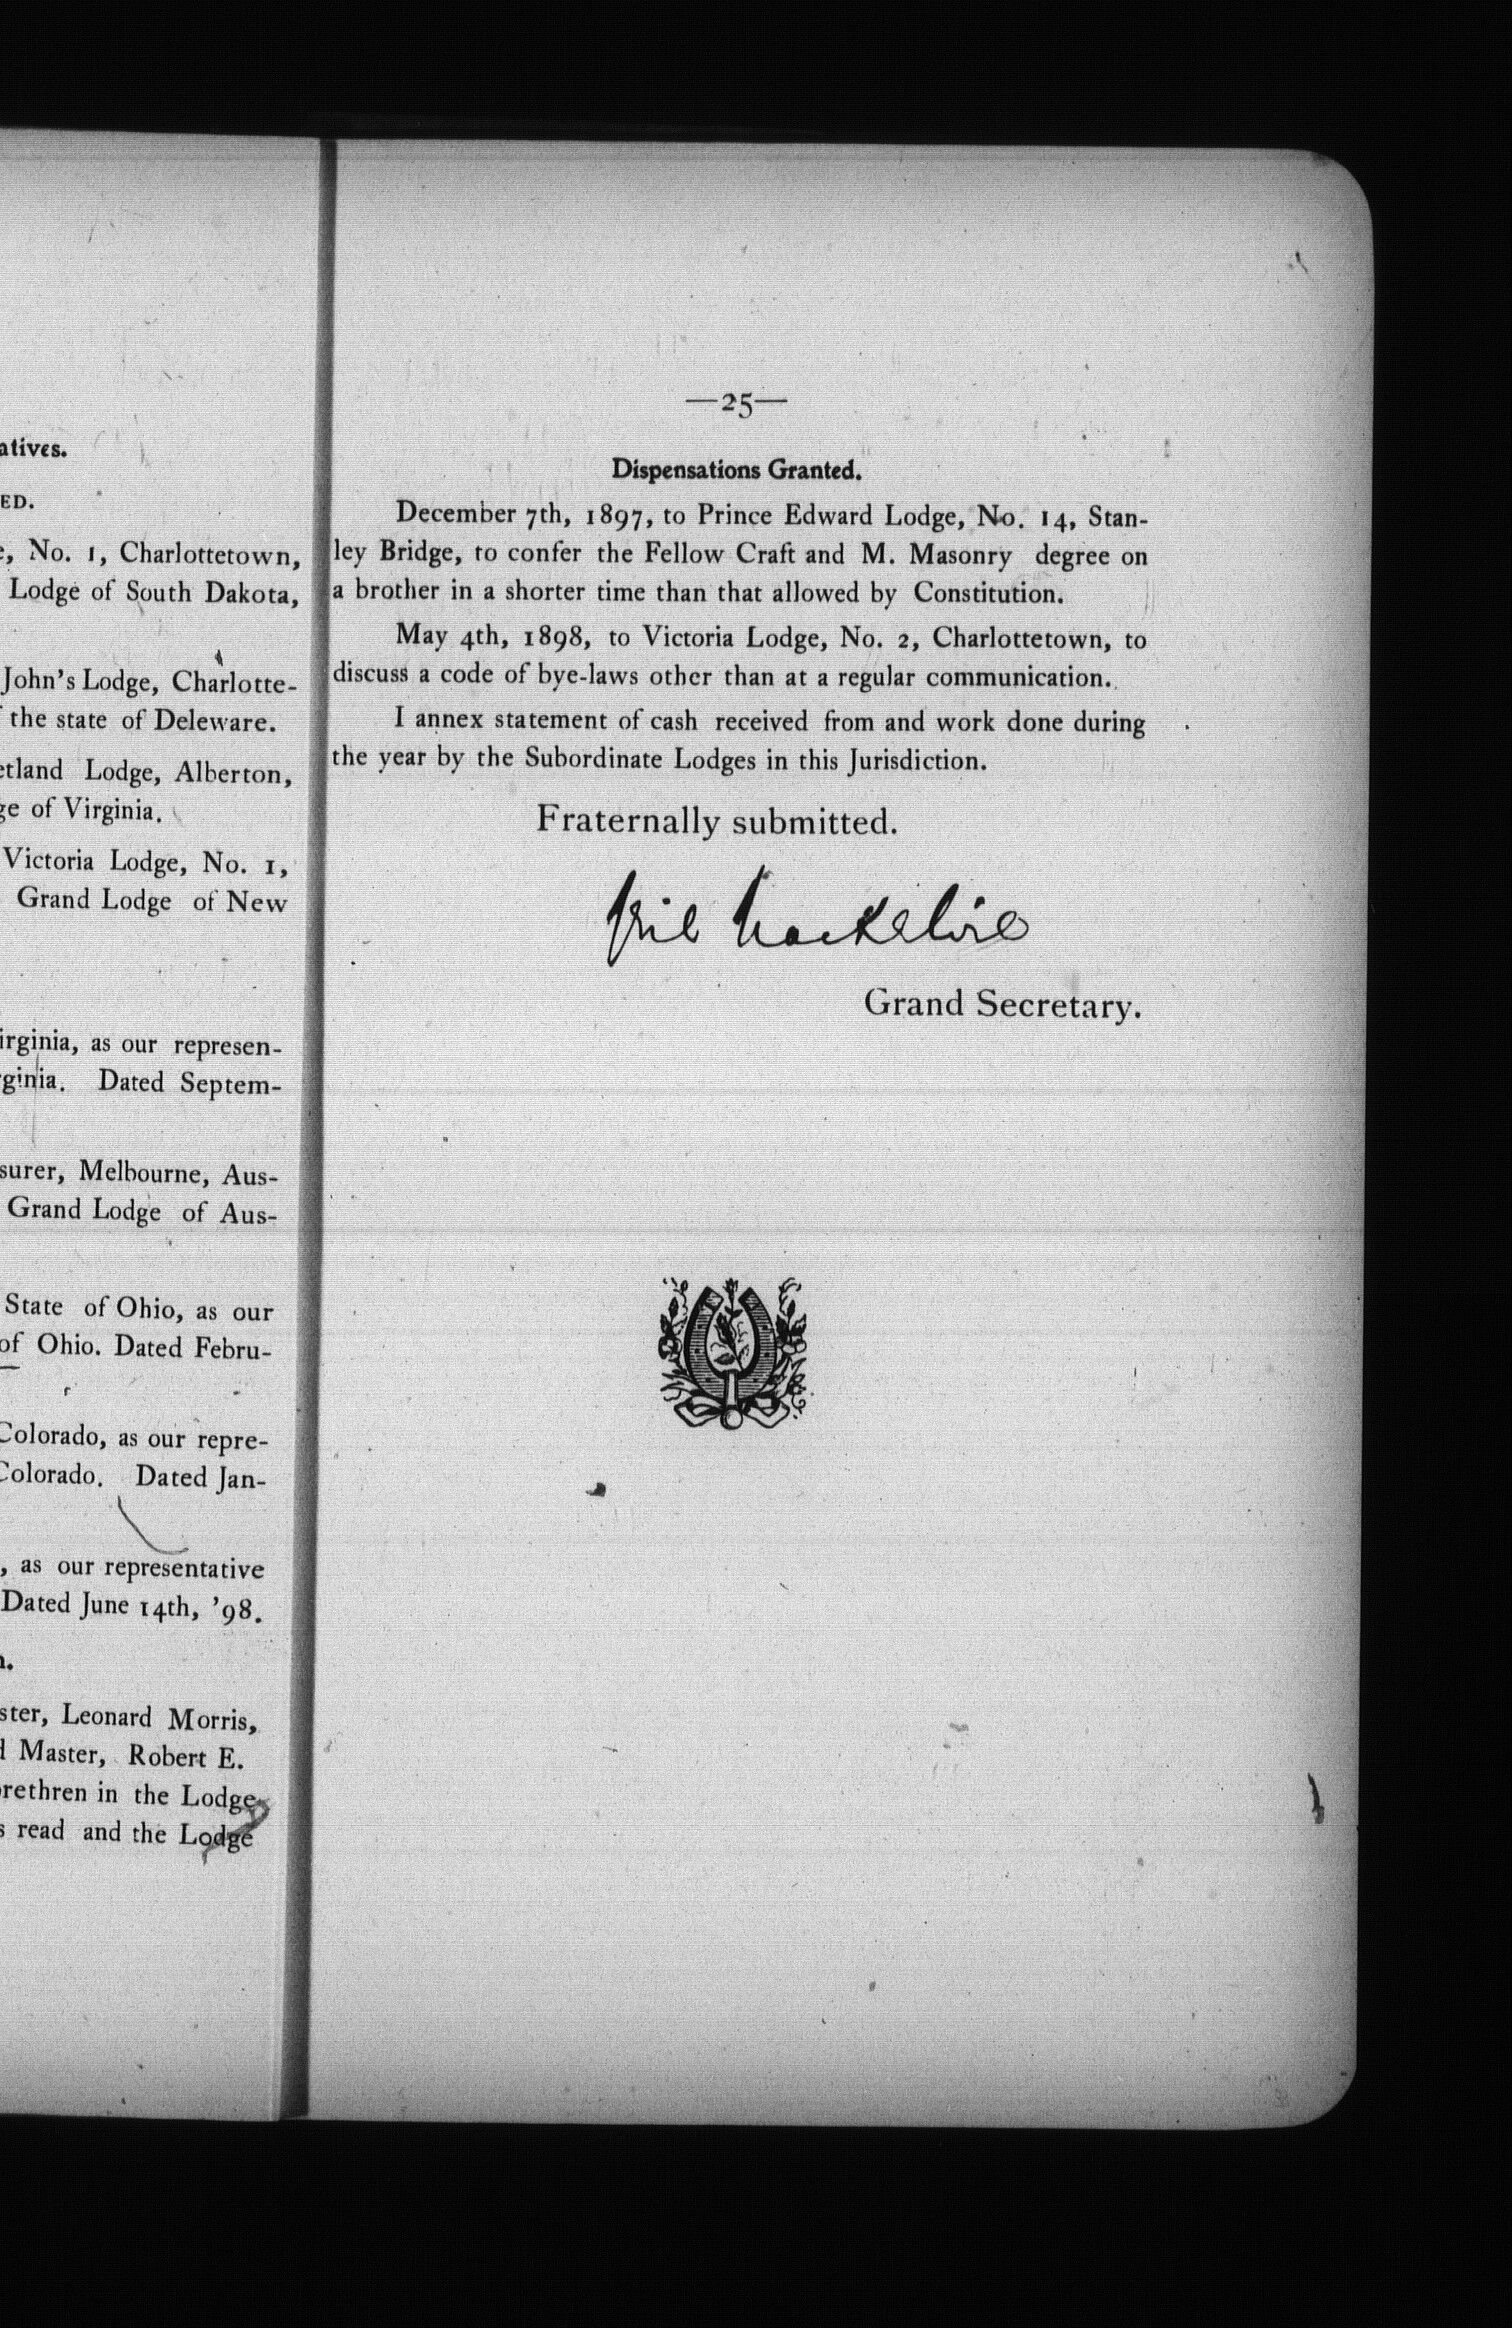 atives.
ED.
No. 1, Charlottetown,
Lodge of South Dakota,
John's Lodge, Charlotte-
the state of Deleware.
etland Lodge, Alberton,
ge of Virginia.
Victoria Lodge, No. 1,
Grand Lodge of New
irginia, as our represen-
rginia. Dated Septem-
surer, Melbourne, Aus-
Grand Lodge of Aus-
State of Ohio, as our
of Ohio. Dated Febru-
Colorado, as our repre-
Colorado. Dated Jan-
, as our representative
Dated June 14th, '98.
ster, Leonard Morris,
Master, Robert E.
rethren in the Lodge
s read and the Lodge
—25—
Dispensations Granted.
December 7th, 1897, to Prince Edward Lodge, No. 14, Stan-
ley Bridge, to confer the Fellow Craft and M. Masonry degree on
a brother in a shorter time than that allowed by Constitution.
May 4th, 1898, to Victoria Lodge, No. 2, Charlottetown, to
discuss a code of bye-laws other than at a regular communication.
I annex statement of cash received from and work done during
the year by the Subordinate Lodges in this Jurisdiction.
Fraternally submitted.
Grand Secretary.